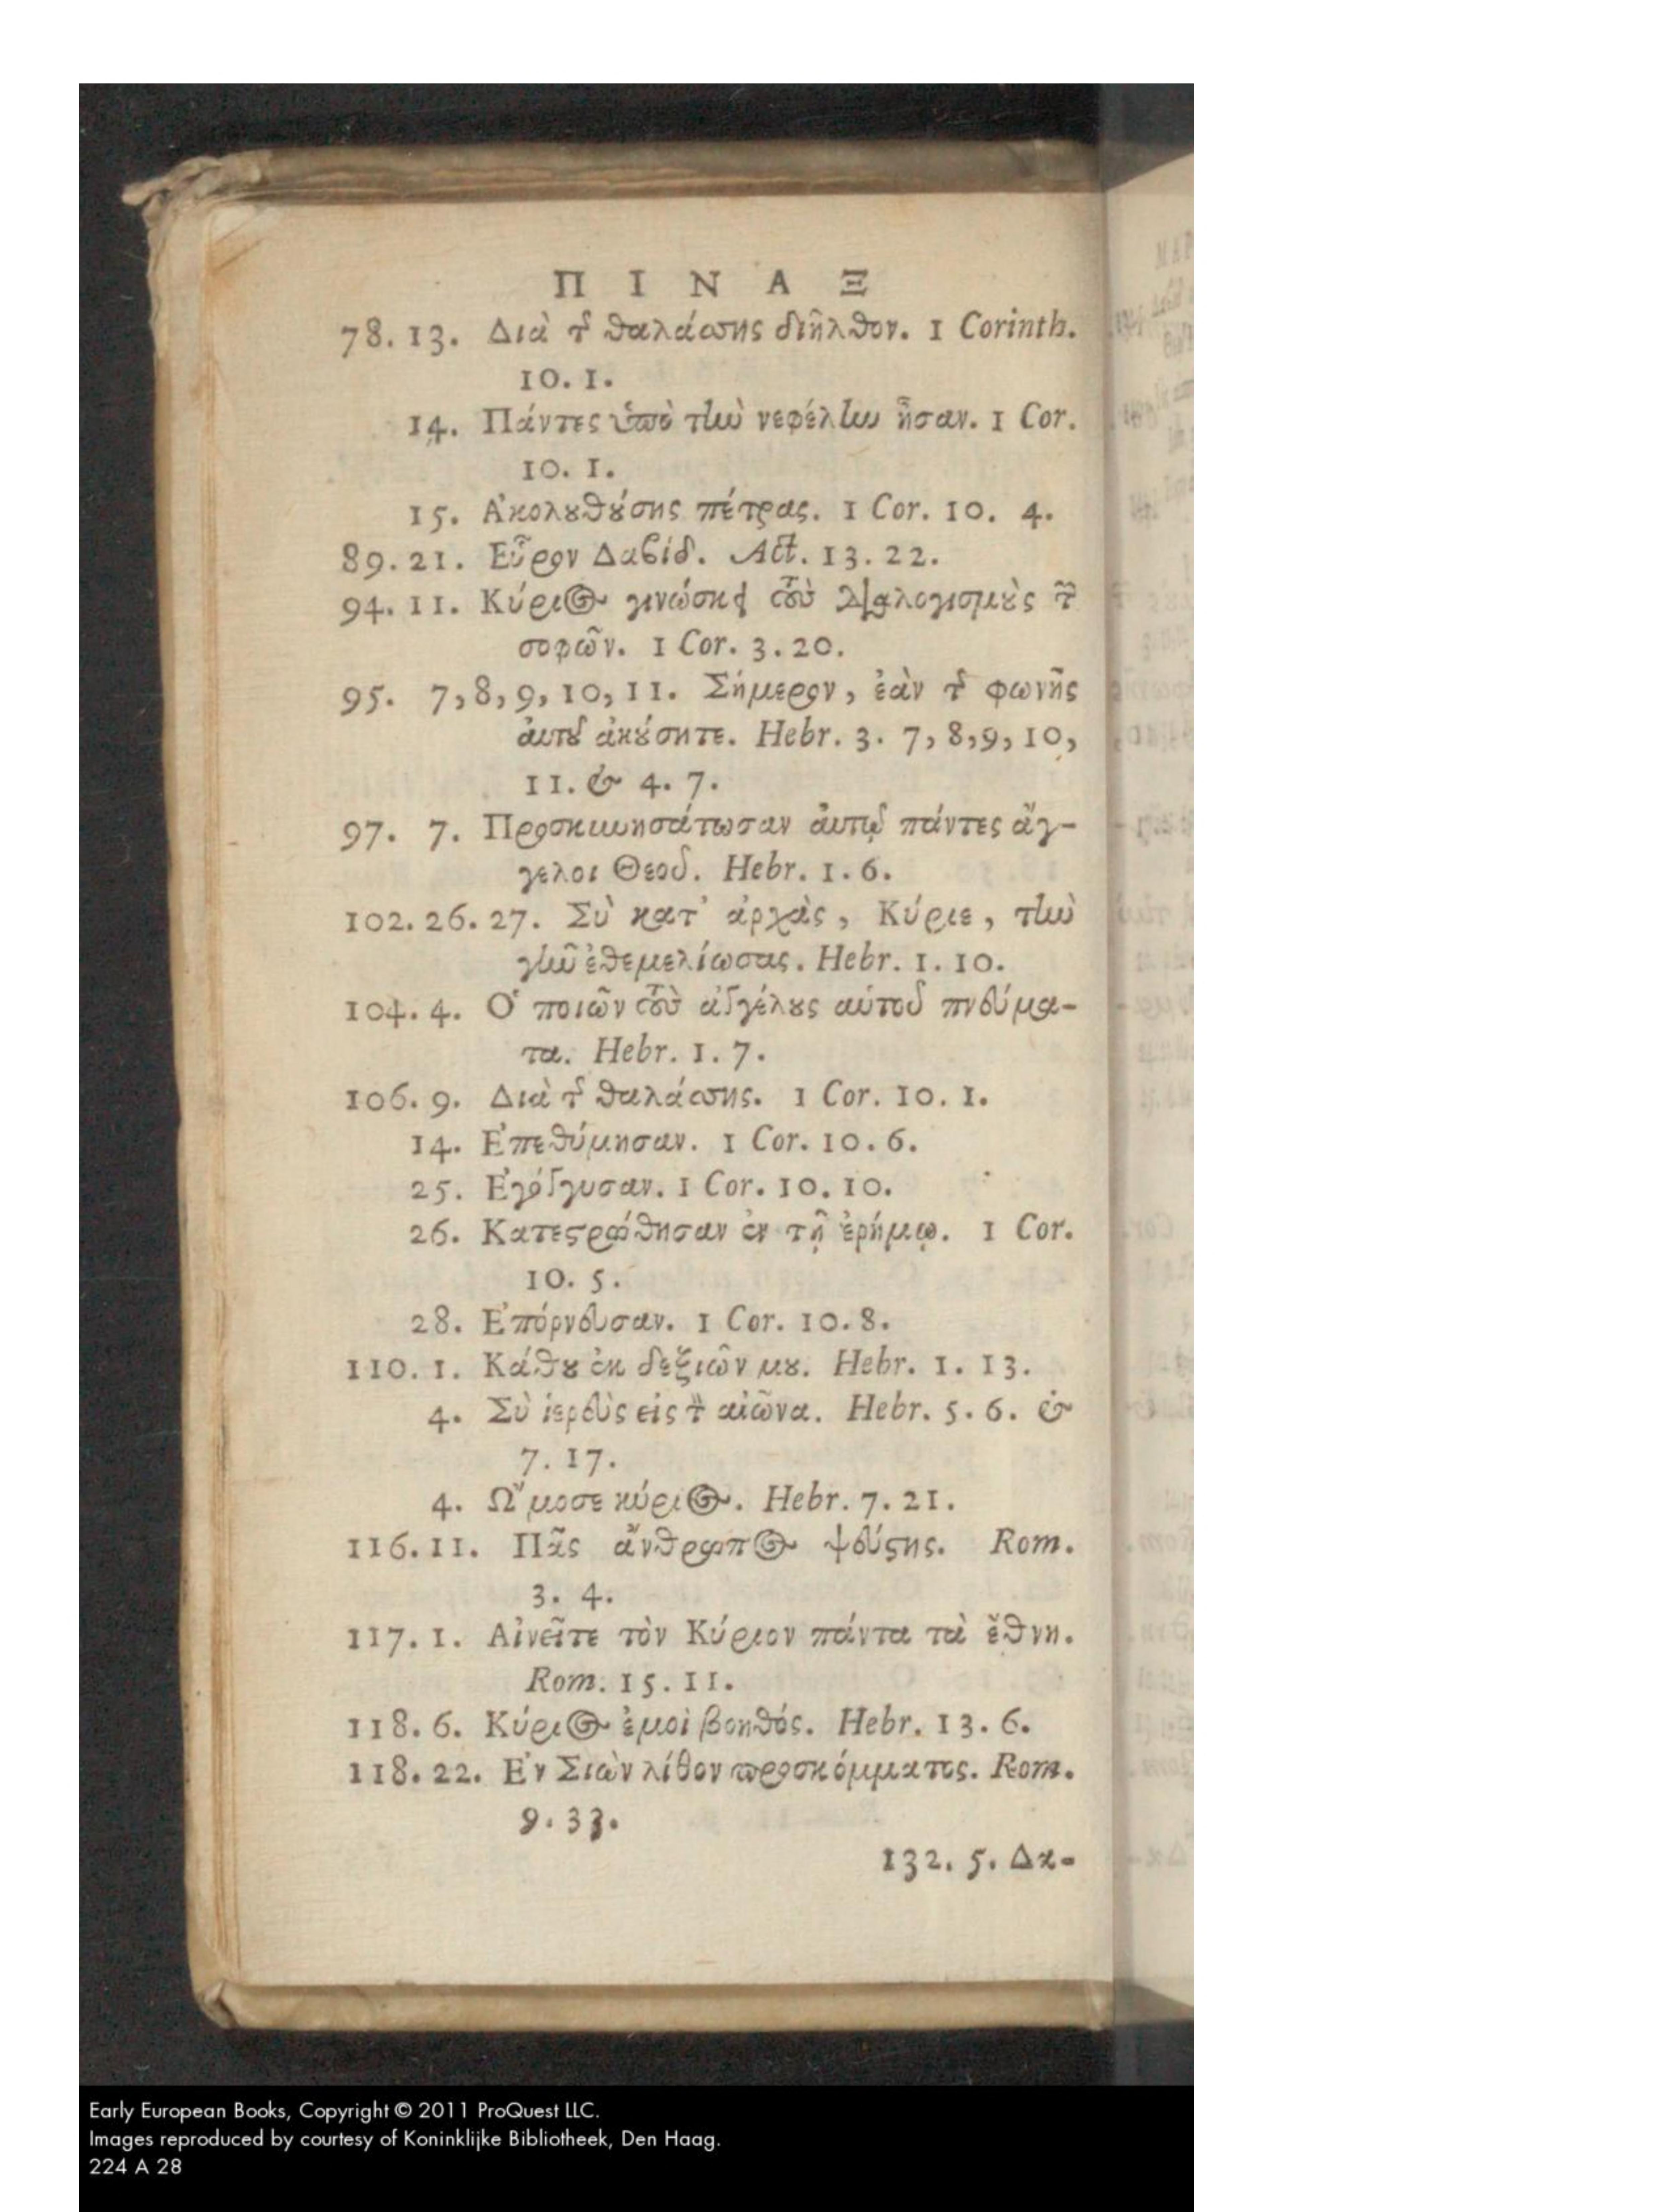 Π Ι Ν Α Ξ
78. 13. Διὰ τῆς θαλάσσης διῆλθον. 1 Corinth.
10. 1.
14. Πάντες ὑπὸ τὴν νεφέλην ἦσαν. 1 Cor.
10. 1.
15. Ἀκολȣθȣ́σης πέτρας. 1 Cor. 10. 4.
89. 21. Εὗρον Δαβίδ. Act. 13. 22.
94. 11. Κύριος γινώσκει τοὺς διαλογισμȣ̀ς τῶν
σοφῶν. 1 Cor. 3. 20.
95. 7, 8, 9, 10, 11. Σήμερον, ἐὰν τῆς φωνῆς
ἀυτȣ͂ ἀκȣ́σητε. Hebr. 3. 7, 8, 9, 10,
11. & 4. 7.
97. 7. Προσκυνησάτωσαν ἀυτῷ πάντες ἄγ-
γελοι Θεοῦ. Hebr. 1. 6.
102. 26. 27. Σὺ κατ' ἀρχὰς, Κύριε, τὴν
γῆν ἐθεμελίωσας. Hebr. 1. 10.
104. 4. Ὁ ποιῶν τοὺς ἀγγέλȣς αὑτοῦ πνεύμα-
τα. Hebr. 1. 7.
106. 9. Διὰ τῆς θαλάσσης. 1 Cor. 10. 1.
14. Ἐπεθύμησαν. 1 Cor. 10. 6.
25. Ἐγόγγυσαν. 1 Cor. 10. 10.
26. Κατεστρώθησαν ἐν τῇ ἐρήμῳ. 1 Cor.
10. 5.
28. Ἐπόρνευσαν. 1 Cor. 10. 8.
110. 1. Κάθȣ ἐκ δεξιῶν μȣ. Hebr. 1. 13.
4. Σὺ ἱερεὺς εἰς τὸν αἰῶνα. Hebr. 5. 6. &
7. 17.
4. Ὤμοσε κύριος. Hebr. 7. 21.
116. 11. Πᾶς ἄνθρωπος ψεύστης. Rom.
3. 4.
117. 1. Αἰνεῖτε τὸν Κύριον πάντα τὰ ἔθνη.
Rom. 15. 11.
118. 6. Κύριος ἐμοὶ βοηθός. Hebr. 13. 6.
118. 22. Ἐν Σιὼν λίθον προσκόμματος. Rom.
9. 33.
132. 5. Δα-
Early European Books, Copyright © 2011 ProQuest LLC.
Images reproduced by courtesy of Koninklijke Bibliotheek, Den Haag.
224 A 28